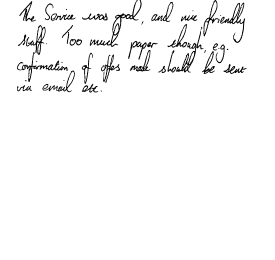 The Service was good, and nice friendly
staff. Too much paper though, e.g.
confirmation of offers made should be sent
via email etc.